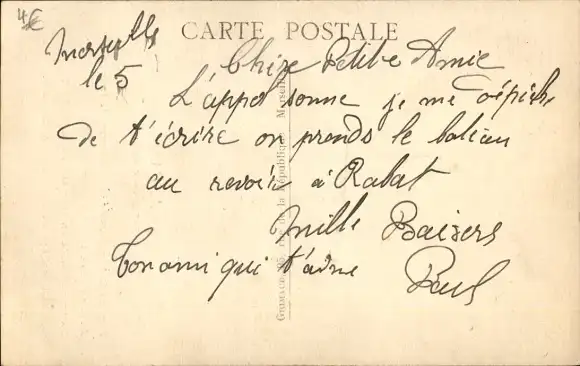 4€
CARTE POSTALE
Marseille
le 5
Chère Petite Amie
L'appel sonne je me dépêche
de t'écrire on prends le bateau
au revoir à Rabat
mille Baisers
Ton ami qui t'aime Paul
de la République Marseille